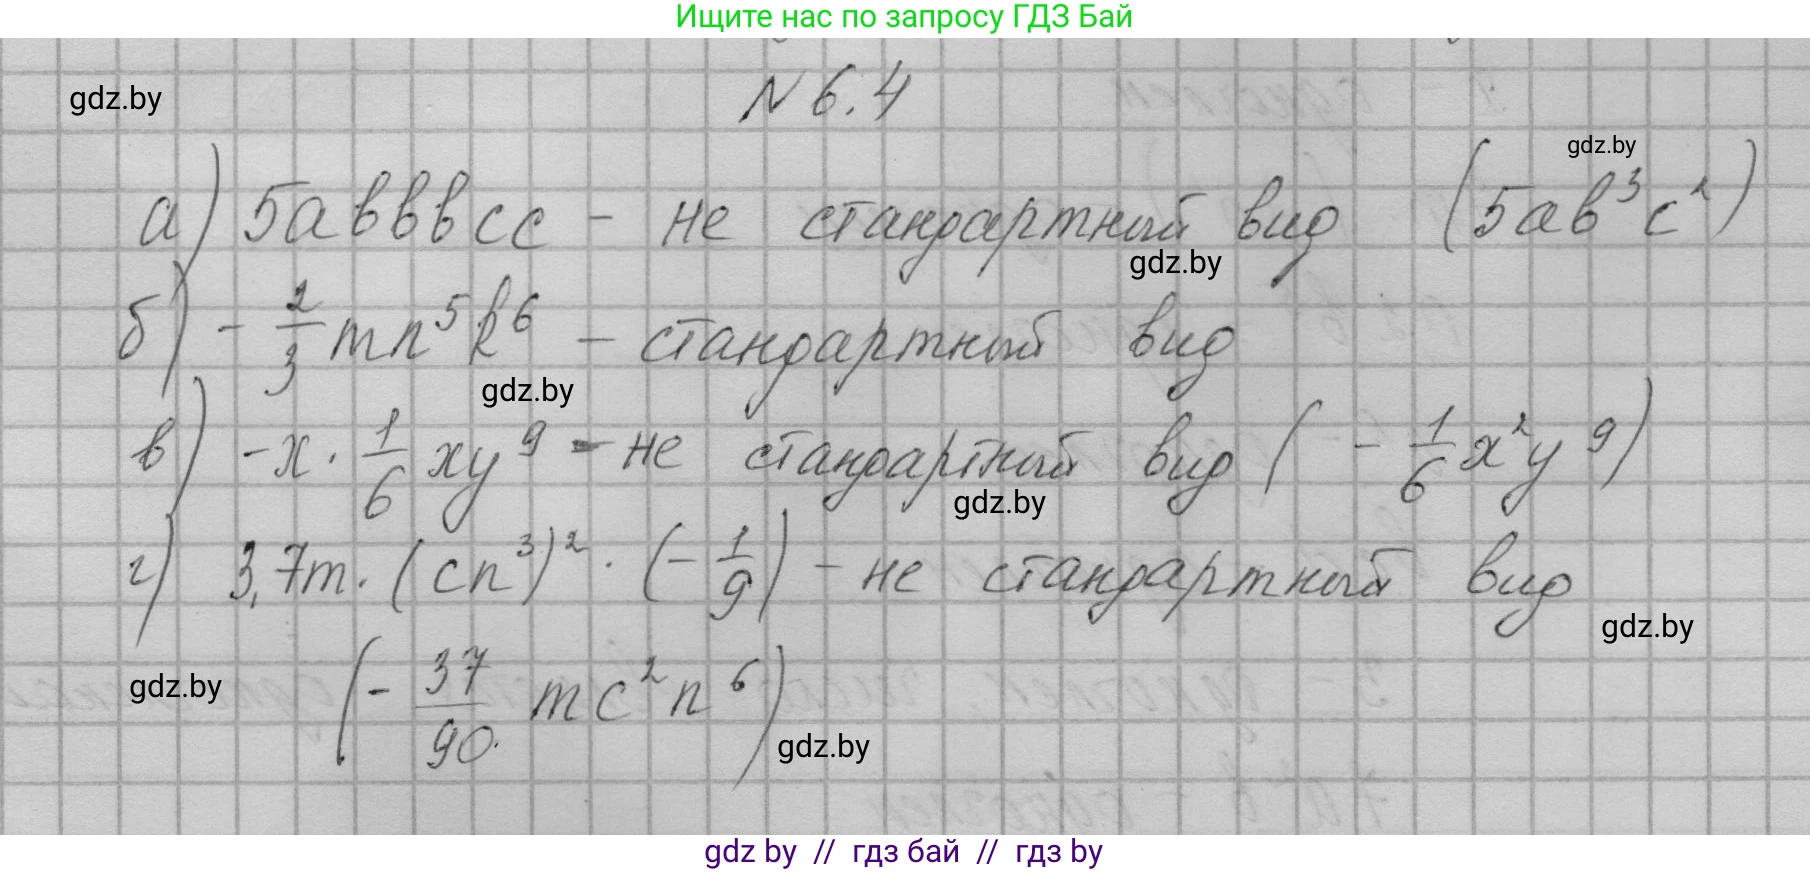 Ищите нас по запросу ГДЗ Бай
gdz.by
N 6.4
gdz.by
а) 5авввсс - не стандартный вид (5ав³с²)
gdz.by
б) - 2/3 mn⁵k⁶ - стандартный вид
gdz.by
в) -x · 1/6 xy⁹ - не стандартный вид ( - 1/6 x²y⁹)
gdz.by
г) 3,7m · (cn³)² · (- 1/9) - не стандартный вид
gdz.by
gdz.by
(- 37/90 mc²n⁶)
gdz.by
gdz by // гдз бай // гдз by